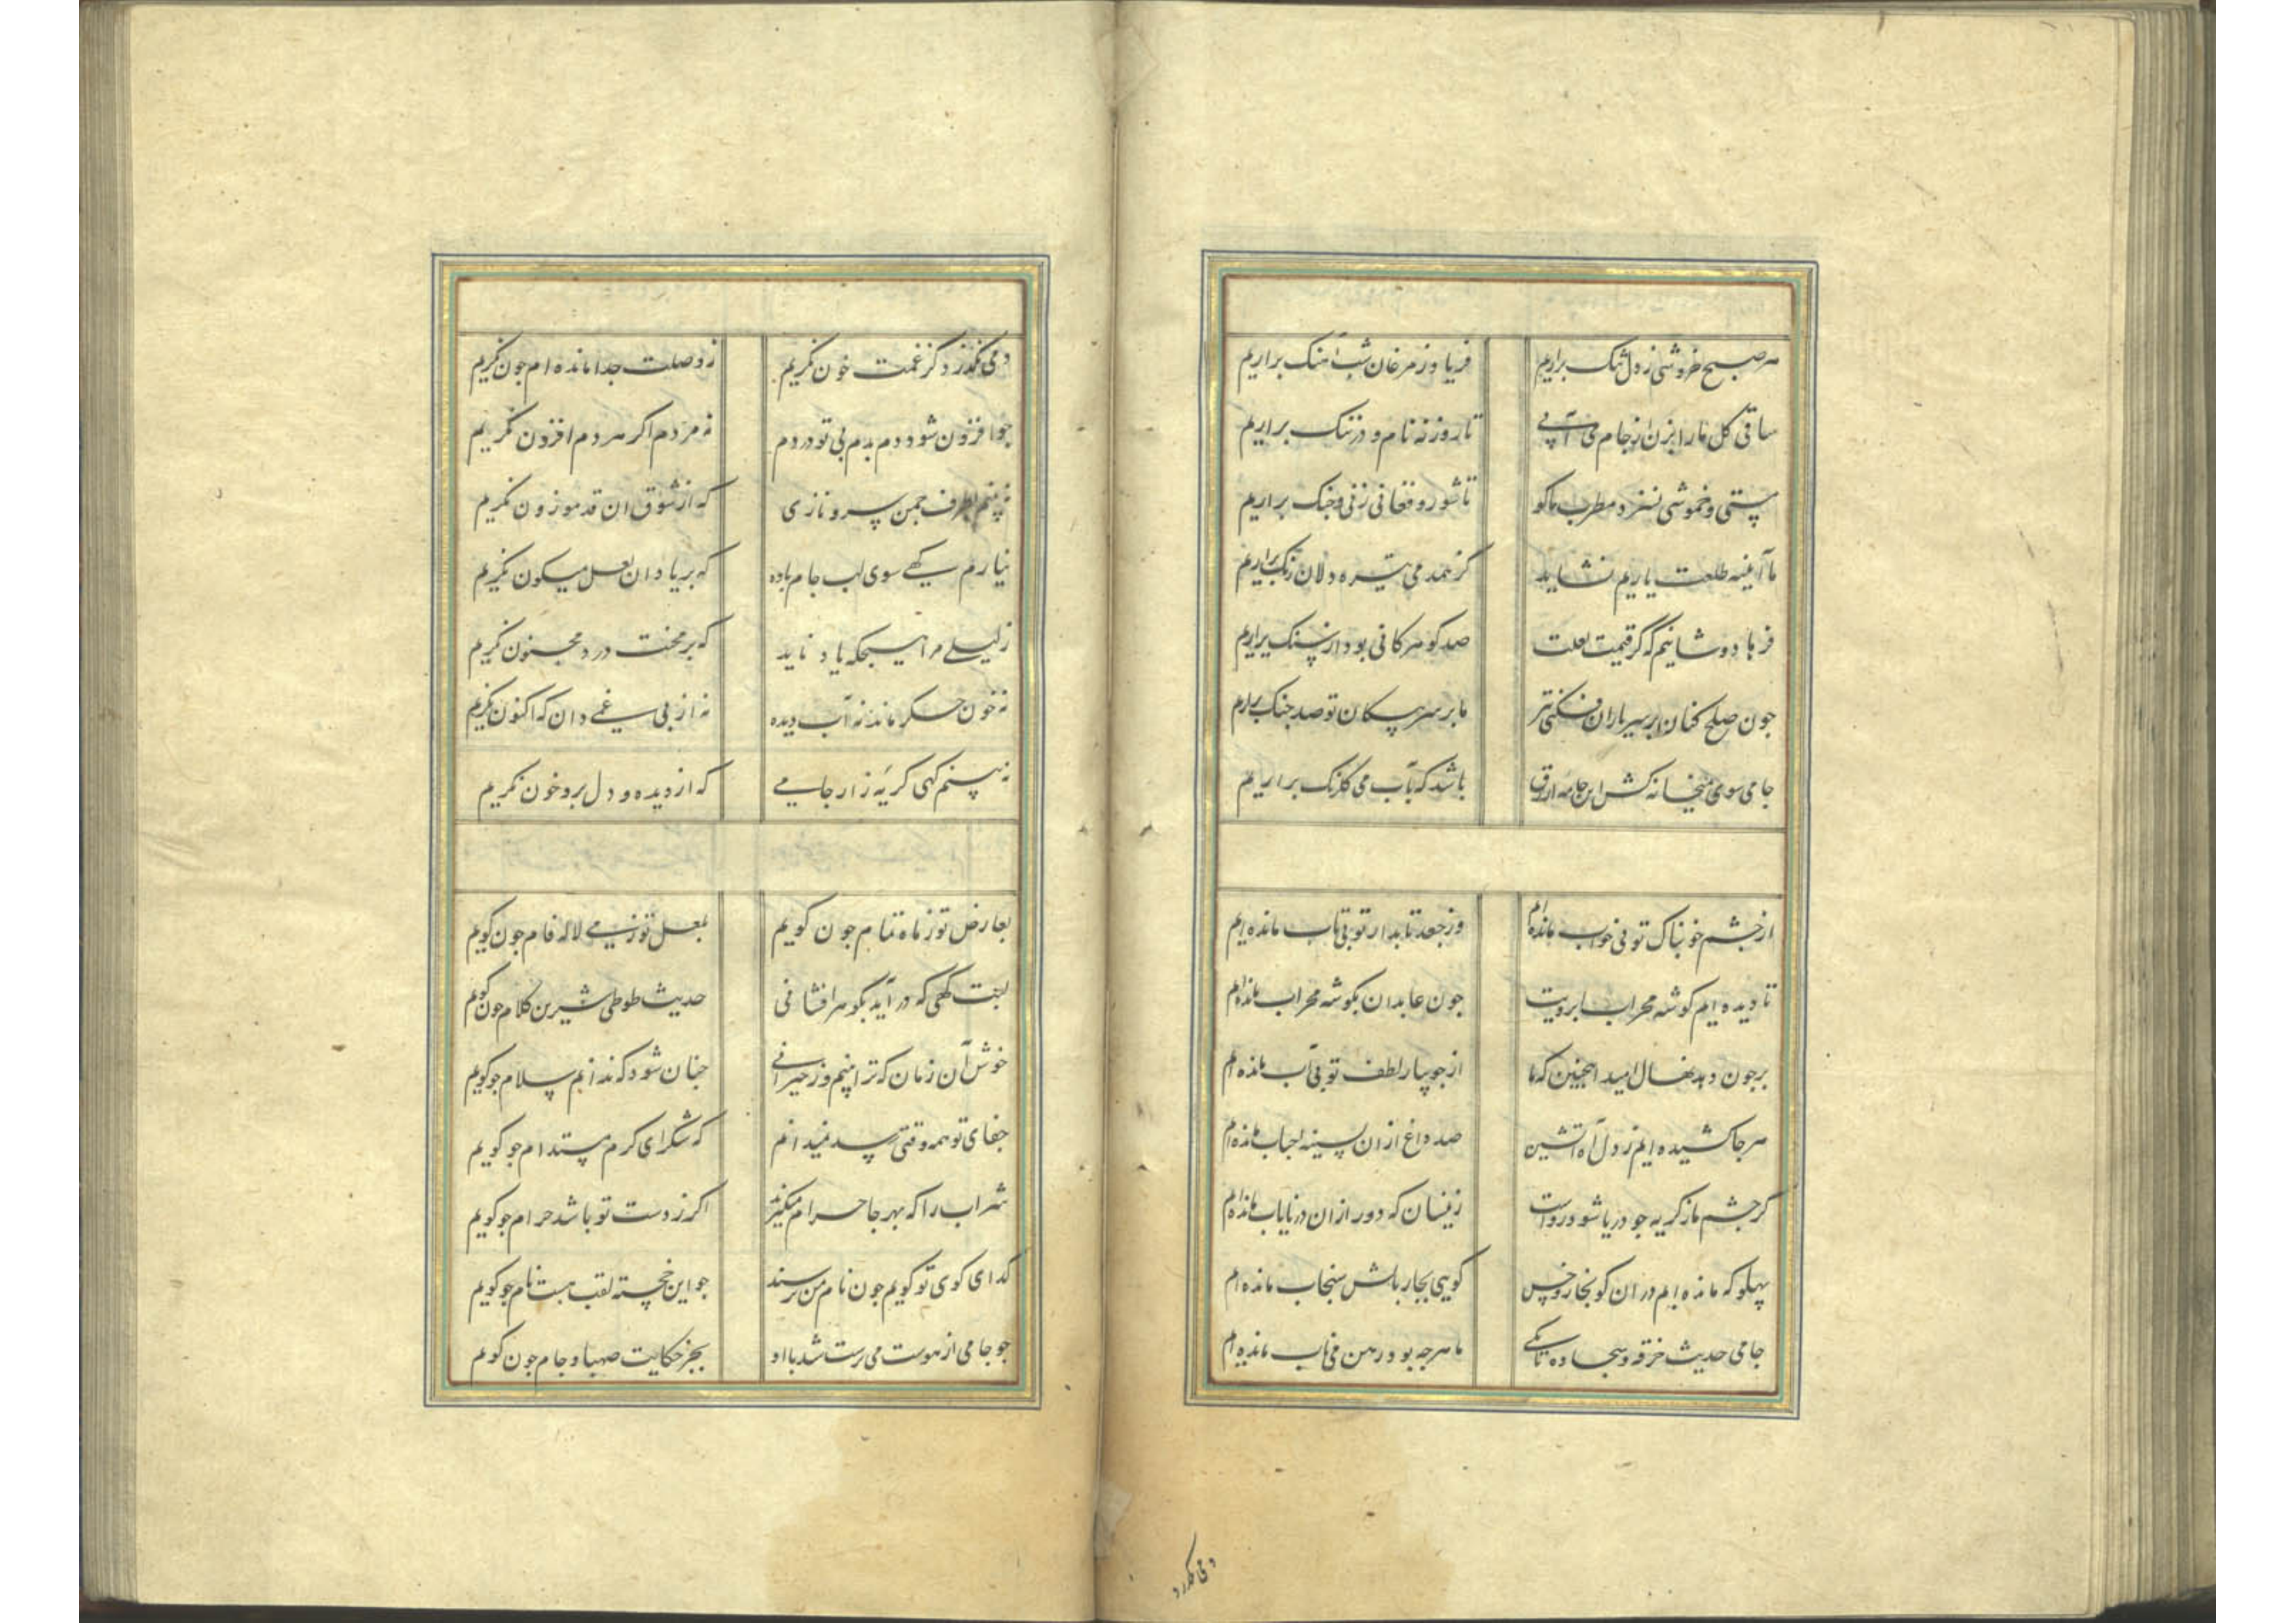 هر صبح خروشی ز دل تنک براریم فریاد ز مرغان شب آهنک براریم
ساقی کل ما را بزن از جام می آبی تا روزنه نام و در ننک براریم
پستی و خموشی نسزد مطرب ما کو تا شور و فغانی ز نی و چنک براریم
ما آینه طلعت یاریم نشاید کز همدمی تیره دلان زنک براریم
فرهاد وشانیم که گر قیمت لعلت صد کوهر کانی بود از سنک براریم
جون صلح کنان بر سر یاران فکنی تیر ما بر سر پیکان تو صد جنک براریم
جامی سوی میخانه کش این جامه ازرق باشد که بآب می کلرنک براریم
از جشم خوبناک تو بی خواب مانده ام وز جعد تابدار تو بی تاب مانده ایم
تا دیده ایم کوشه محراب ابرویت جون عابدان بکوشه محراب مانده ام
بر جون دهد نهال امید اینجنین که ما از جویبار لطف تو بی آب مانده ام
هر جا کشیده ایم ز دل آه آتشین صد داغ از ان بسینه احباب مانده ام
کر جشم ما ز کریه جو دریا شود رواست زینسان که دور ازان در نایاب مانده ام
پهلو که مانده ایم در ان کو بخار و خس کویی بجار بالش سنجاب مانده ام
جامی حدیث خرقه و سجاده تا بکی ما هر جه بود رهن می ناب مانده ایم
دمی نگذرد
دمی نکذرد کز غمت خون نکریم ز وصلت جدا مانده ام جون نکریم
جو افزون شود دم بدم بی تو دردم نه مردم اکر هر دم افزون نکریم
نه بینم بطرف جمن سرو نازی که از شوق ان قد موزون نکریم
نیارم کهی سوی لب جام باده که بر یاد ان لعل میکون نکریم
ز لیلی مرا هیجکه یاد ناید که بر محنت درد مجنون نکریم
نه خون جکر ماند نه آب دیده نه از بی غمی دان که اکنون نکریم
نه بینم کهی کریه زار جامی که از دیده و دل برو خون نکریم
بعارض تو ز ماه تمام جون کویم بلعل تو ز می لاله فام جون کویم
لبت کهی که در آید بکوهر افشانی حدیث طوطی شیرین کلام جون کویم
خوش آن زمان که ترا بینم وز حیرانی جنان شود که ندانم سلام جو کویم
جفای تو همه وقتی رسد نمیدانم که شکر ای کرم مستدام جو کویم
شراب را که بهر جا حرام میکیرند اکر ز دست تو باشد حرام جو کویم
کدای کوی تو کویم جون نام من پرسند جو این خجسته لقب هست نام جو کویم
جو جامی از هوست می پرست شد با او بجز حکایت صهبا و جام جون کویم